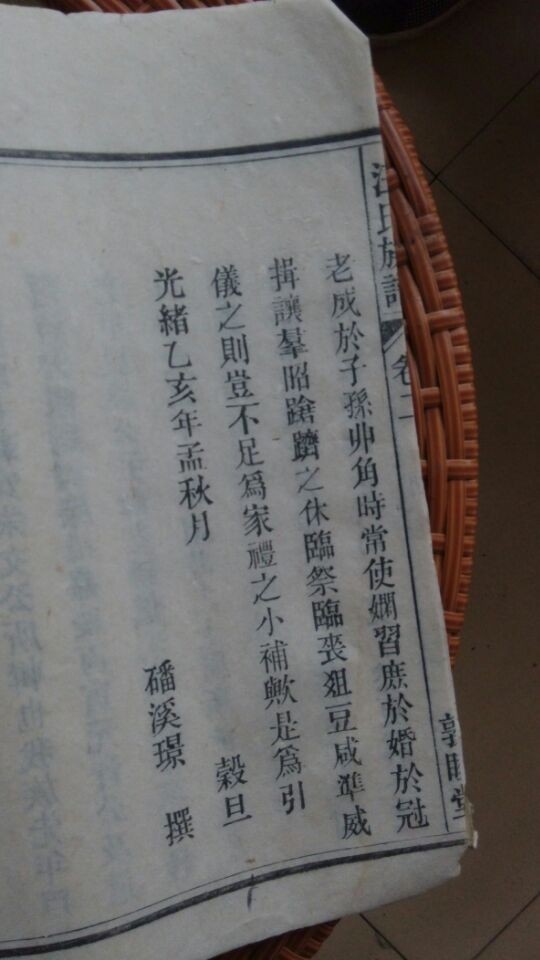 汪氏族譜 卷二
敦睦堂
老成於子孫丱角時常使嫻習庶於婚於冠
揖讓羣昭蹌躋之休臨祭臨喪俎豆咸準威
儀之則豈不足爲家禮之小補歟是爲引
光緒乙亥年孟秋月 穀旦
磻溪璟 撰